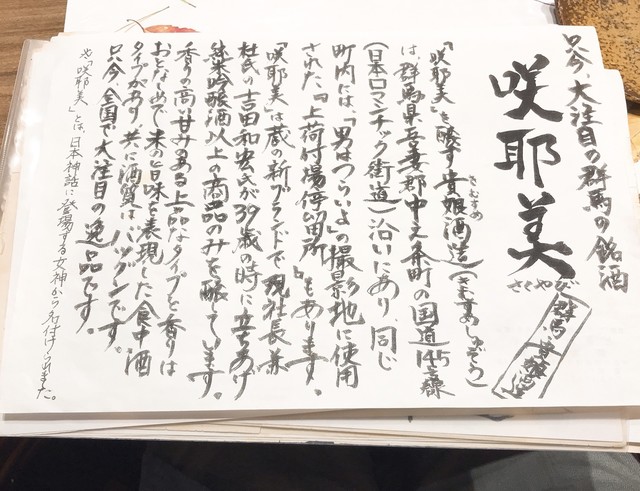 只今、大注目の群馬の銘酒
咲耶美
さくやび
群馬・貴娘酒造
「咲耶美」を醸す貴娘酒造(きむすめしゅぞう)
きむすめ
は群馬県吾妻郡中之条町の国道145号線
(日本ロマンチック街道)沿いにあり、同じ
町内には、「男はつらいよ」の撮影地に使用
された、「上荷付場停留所」もあります。
「咲耶美」は蔵の新ブランドで、現社長兼
杜氏の吉田和宏氏が39歳の時に立ちあげ
純米吟醸酒以上の商品のみを醸しています。
香りの高い甘みある上品なタイプと香りは
おとなしめで、米の旨味を表現した食中酒
タイプがあり、共に酒質はバツグンです。
只今、全国で大注目の逸品です。
※「咲耶美」とは、日本神話に登場する女神から名付けられました。